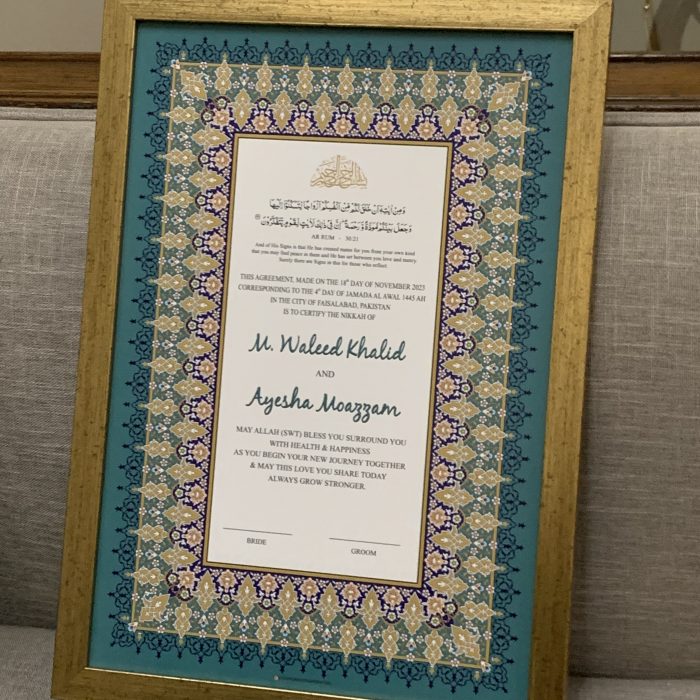 بسم الله الرحمن الرحيم
وَمِنْ آيَاتِهِ أَنْ خَلَقَ لَكُم مِّنْ أَنفُسِكُمْ أَزْوَاجًا لِّتَسْكُنُوا إِلَيْهَا
وَجَعَلَ بَيْنَكُم مَّوَدَّةً وَرَحْمَةً ۚ إِنَّ فِي ذَٰلِكَ لَآيَاتٍ لِّقَوْمٍ يَتَفَكَّرُونَ
AR RUM - 30:21
And of His Signs is that He has created mates for you from your own kind
that you may find peace in them and He has set between you love and mercy.
Surely there are Signs in this for those who reflect.
THIS AGREEMENT, MADE ON THE 18th DAY OF NOVEMBER 2023
CORRESPONDING TO THE 4th DAY OF JAMADA AL AWAL 1445 AH
IN THE CITY OF FAISALABAD, PAKISTAN
IS TO CERTIFY THE NIKKAH OF
M. Waleed Khalid
AND
Ayesha Moazzam
MAY ALLAH (SWT) BLESS YOU SURROUND YOU
WITH HEALTH & HAPPINESS
AS YOU BEGIN YOUR NEW JOURNEY TOGETHER
& MAY THIS LOVE YOU SHARE TODAY
ALWAYS GROW STRONGER.
BRIDE
GROOM